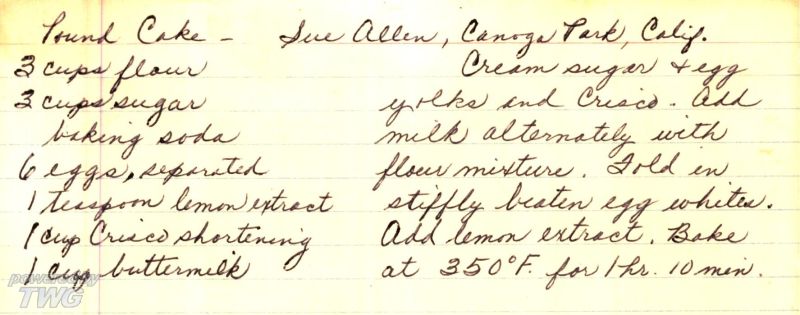 Pound Cake - Sue Allen, Canoga Park, Calif.
3 cups flour
3 cups sugar
baking soda
6 eggs, separated
1 teaspoon lemon extract
1 cup Crisco shortening
1 cup buttermilk
Cream sugar & egg
yolks and Crisco. Add
milk alternately with
flour mixture. Fold in
stiffly beaten egg whites.
Add lemon extract. Bake
at 350°F. for 1 hr. 10 min.
powered by
TWG